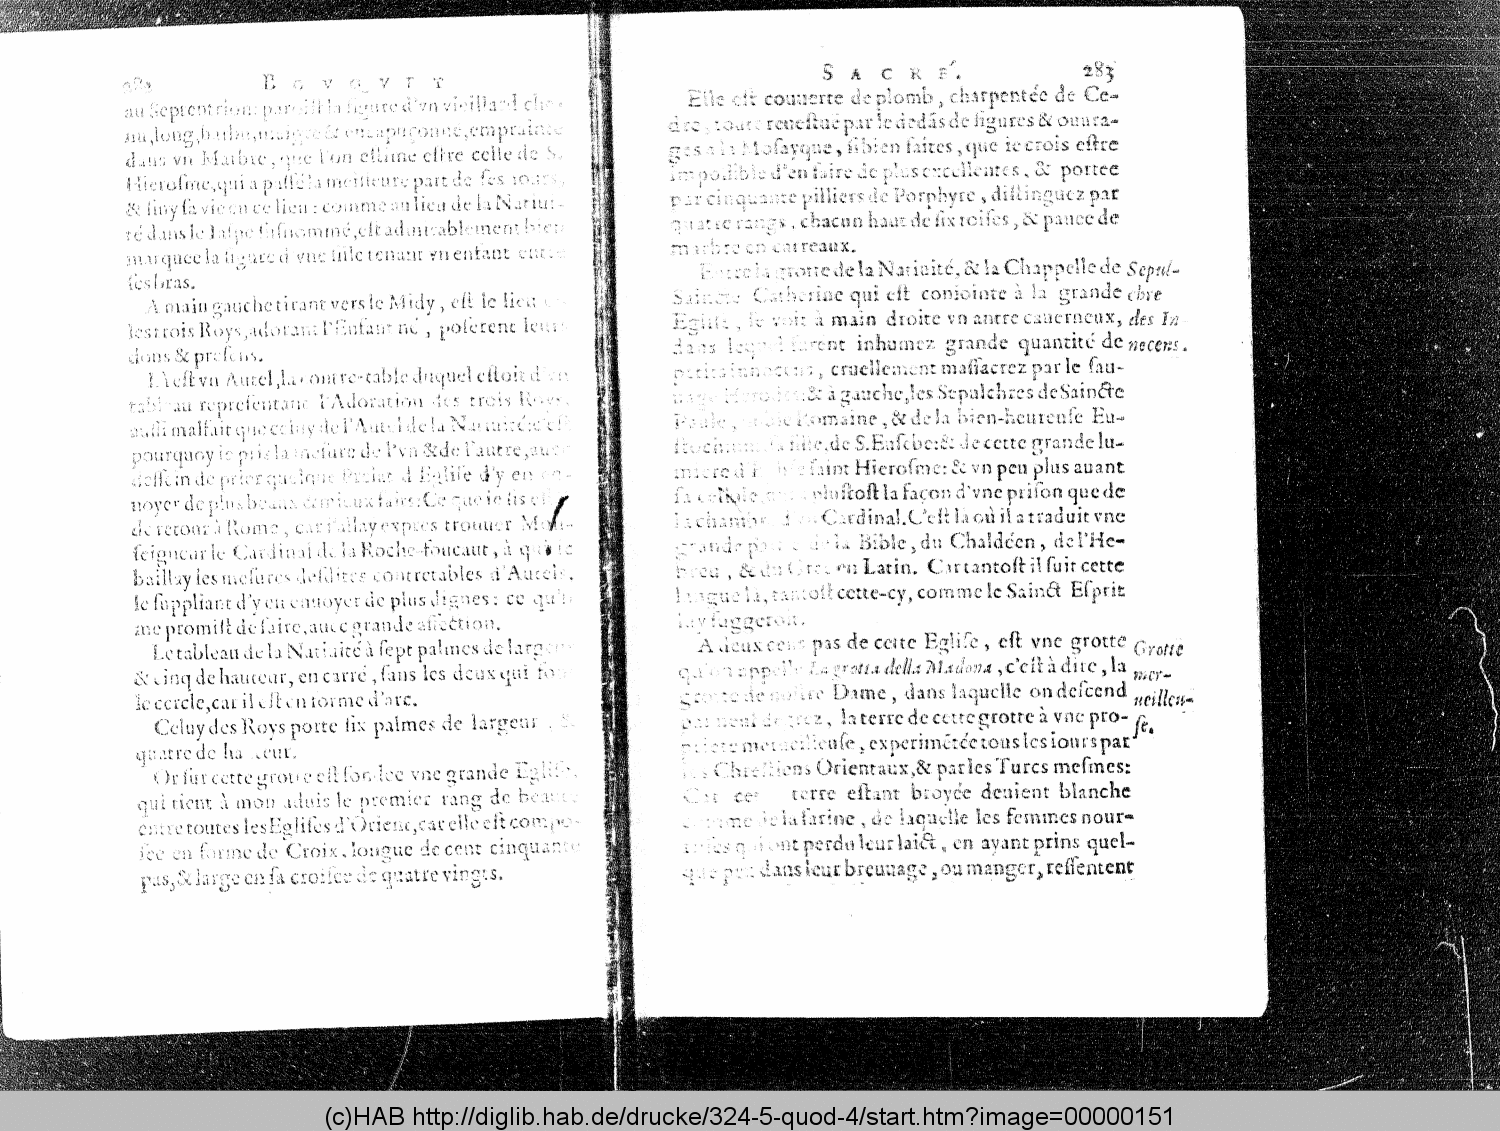 282 BOVQVET
au Septentrion: paroist la figure d'vn vieillard che-
nu, long, barbu, maigre & encapuçonné, emprainte
dans vn Marbre, que l'on estime estre celle de S.
Hierosme, qui a passé la meilleure part de ses iours,
& finy sa vie en ce lieu: comme au lieu de la Natiui-
té dans le Iaspe susnommé, est admirablement bien
marquee la figure d'vne fille tenant vn enfant entre
ses bras.
A main gauche tirant vers le Midy, est le lieu où
les trois Roys, adorant l'Enfant né, poserent leurs
dons & presens.
Là est vn Autel, la contre-table duquel estoit d'vn
tableau representant l'Adoration des trois Roys,
aussi malfait que celuy de l'Autel de la Natiuité: c'est
pourquoy ie pris la mesure de l'vn & de l'autre, auec
dessein de prier quelque Prelat d'Eglise d'y en en-
uoyer de plus beaux & mieux faits: Ce que ie fis
de retour à Rome, car i'allay expres trouuer Mon-
seigneur le Cardinal de la Roche-foucaut, à qui ie
baillay les mesures desdites contretables d'Autels,
le suppliant d'y en enuoyer de plus dignes: ce qu'il
me promist de faire, auec grande affection.
Le tableau de la Natiuité à sept palmes de largeur
& cinq de hauteur, en carré, sans les deux qui font
le cercle, car il est en forme d'arc.
Celuy des Roys porte six palmes de largeur, &
quatre de hauteur.
Or sur cette grotte est fondee vne grande Eglise,
qui tient à mon aduis le premier rang de beauté
entre toutes les Eglises d'Orient, car elle est compo-
sée en forme de Croix, longue de cent cinquante
pas, & large en sa croisee de quatre vingts.
SACRÉ. 283
Elle est couuerte de plomb, charpentée de Ce-
dre, toute reuestuë par le dedãs de figures & ouura-
ges à la Mosayque, si bien faites, que ie crois estre
impossible d'en faire de plus excellentes, & portee
par cinquante pilliers de Porphyre, distinguez par
quatre rangs, chacun haut de six toises, & pauee de
marbre en carreaux.
Entre la grotte de la Natiuité, & la Chappelle de
Saincte Catherine qui est conjointe à la grande
Eglise, se voit à main droite vn antre cauerneux,
dans lequel furent inhumez grande quantité de
petits innocens, cruellement massacrez par le sau-
uage Herodes: & à gauche, les Sepulchres de Saincte
Paule, Romaine, & de la bien-heureuse Eu-
stochium sa fille, de S. Eusebe: & de cette grande lu-
miere d'Eglise saint Hierosme: & vn peu plus auant
sa cellule, qui plustost la façon d'vne prison que de
la chambre d'vn Cardinal. C'est là où il a traduit vne
grande partie de la Bible, du Chaldéen, de l'He-
breu, & du Grec en Latin. Car tantost il suit cette
langue là, tantost cette-cy, comme le Sainct Esprit
luy suggeroit.
A deux cens pas de cette Eglise, est vne grotte
qu'on appelle La grotta della Madona, c'est à dire, la
grotte de nostre Dame, dans laquelle on descend
par neuf degrez, la terre de cette grotte à vne pro-
prieté merueilleuse, experimẽtée tous les iours par
les Chrestiens Orientaux, & par les Turcs mesmes:
Car cette terre estant broyée deuient blanche
comme de la farine, de laquelle les femmes nour-
rices qui ont perdu leur laict, en ayant prins quel-
que peu dans leur breuuage, ou manger, ressentent
Sepul-
chre
des In
nocens.
Grotte
mer-
ueilleu-
se.
(c)HAB http://diglib.hab.de/drucke/324-5-quod-4/start.htm?image=00000151